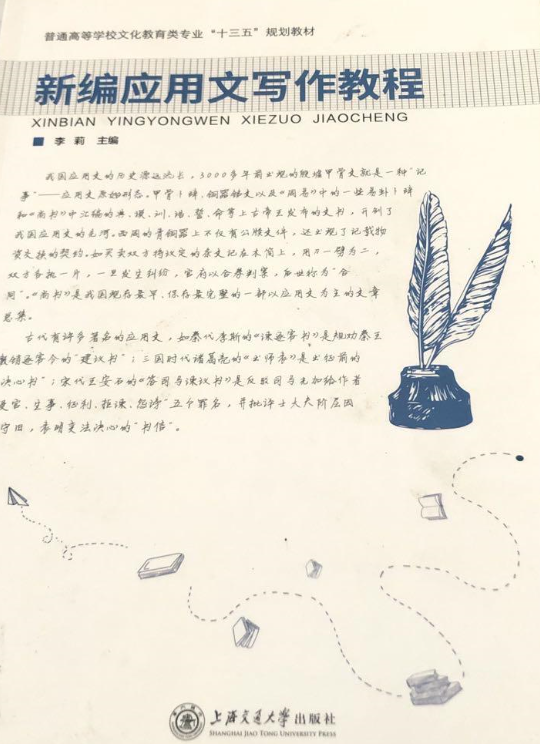 普通高等学校文化教育类专业“十三五”规划教材
新编应用文写作教程
XINBIAN YINGYONGWEN XIEZUO JIAOCHENG
李莉 主编
我国应用文的历史源远流长，3000多年前出现的殷墟甲骨文就是一种“记
事”——应用文原始形态。甲骨卜辞、铜器铭文以及《周易》中的一些卦卜辞
和《尚书》中汇编的典、谟、训、诰、誓、命等上古帝王发布的文书，开创了
我国应用文的先河。西周的青铜器上不仅有公牍文件，还出现了记载物
资交换的契约。如买卖双方将议定的条文记在木简上，用刀一劈为二，
双方各执一片，一旦发生纠纷，官府以合券判案，后世称为“合
同”。《尚书》是我国现存最早、保存最完整的一部以应用文为主的文章
总集。
古代有许多著名的应用文，如秦代李斯的《谏逐客书》是规劝秦王
撤销逐客令的“建议书”；三国时代诸葛亮的《出师表》是出征前的
决心书”；宋代王安石的《答司马谏议书》是反驳司马光加给作者
官、生事、征利、拒谏、怨谤”五个罪名，并批评士大夫阶层因
守旧，表明变法决心的“书信”。
上海交通大学出版社
SHANGHAI JIAO TONG UNIVERSITY PRESS